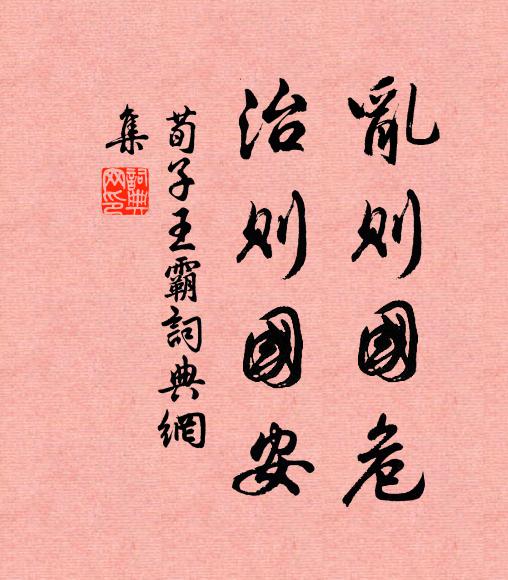 亂則國危
治則國安
荀子王霸詞典網
集
詞典
网印